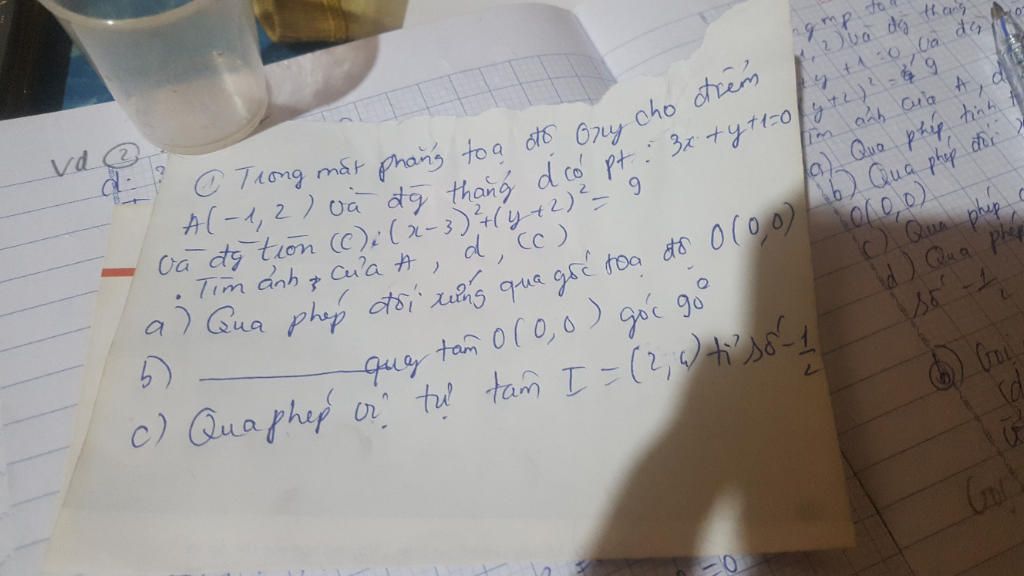 Vd ②
d:
① Trong mặt phẳng toạ độ Oxy cho điểm
A(-1,2) và đg thẳng d có pt: 3x+y+1=0
và đg tròn (C): (x-3)²+(y+2)²=9
. Tìm ảnh của A, d, (C)
a) Qua phép đối xứng qua gốc toạ độ O(0,0)
b) ______ quay tâm O(0,0) góc 90°
c) Qua phép vị tự tâm I=(2,4) tỉ số -1/2
mp toạ
,2) và đg thẳng
y+1=0 và đg
y+2)²= 9
Tìm ảnh của A, d
a) Qua phép tịnh
b) Qua phép đối
O(0,0)
c) Qua phép
d) Qua phép
số -1/2
=0